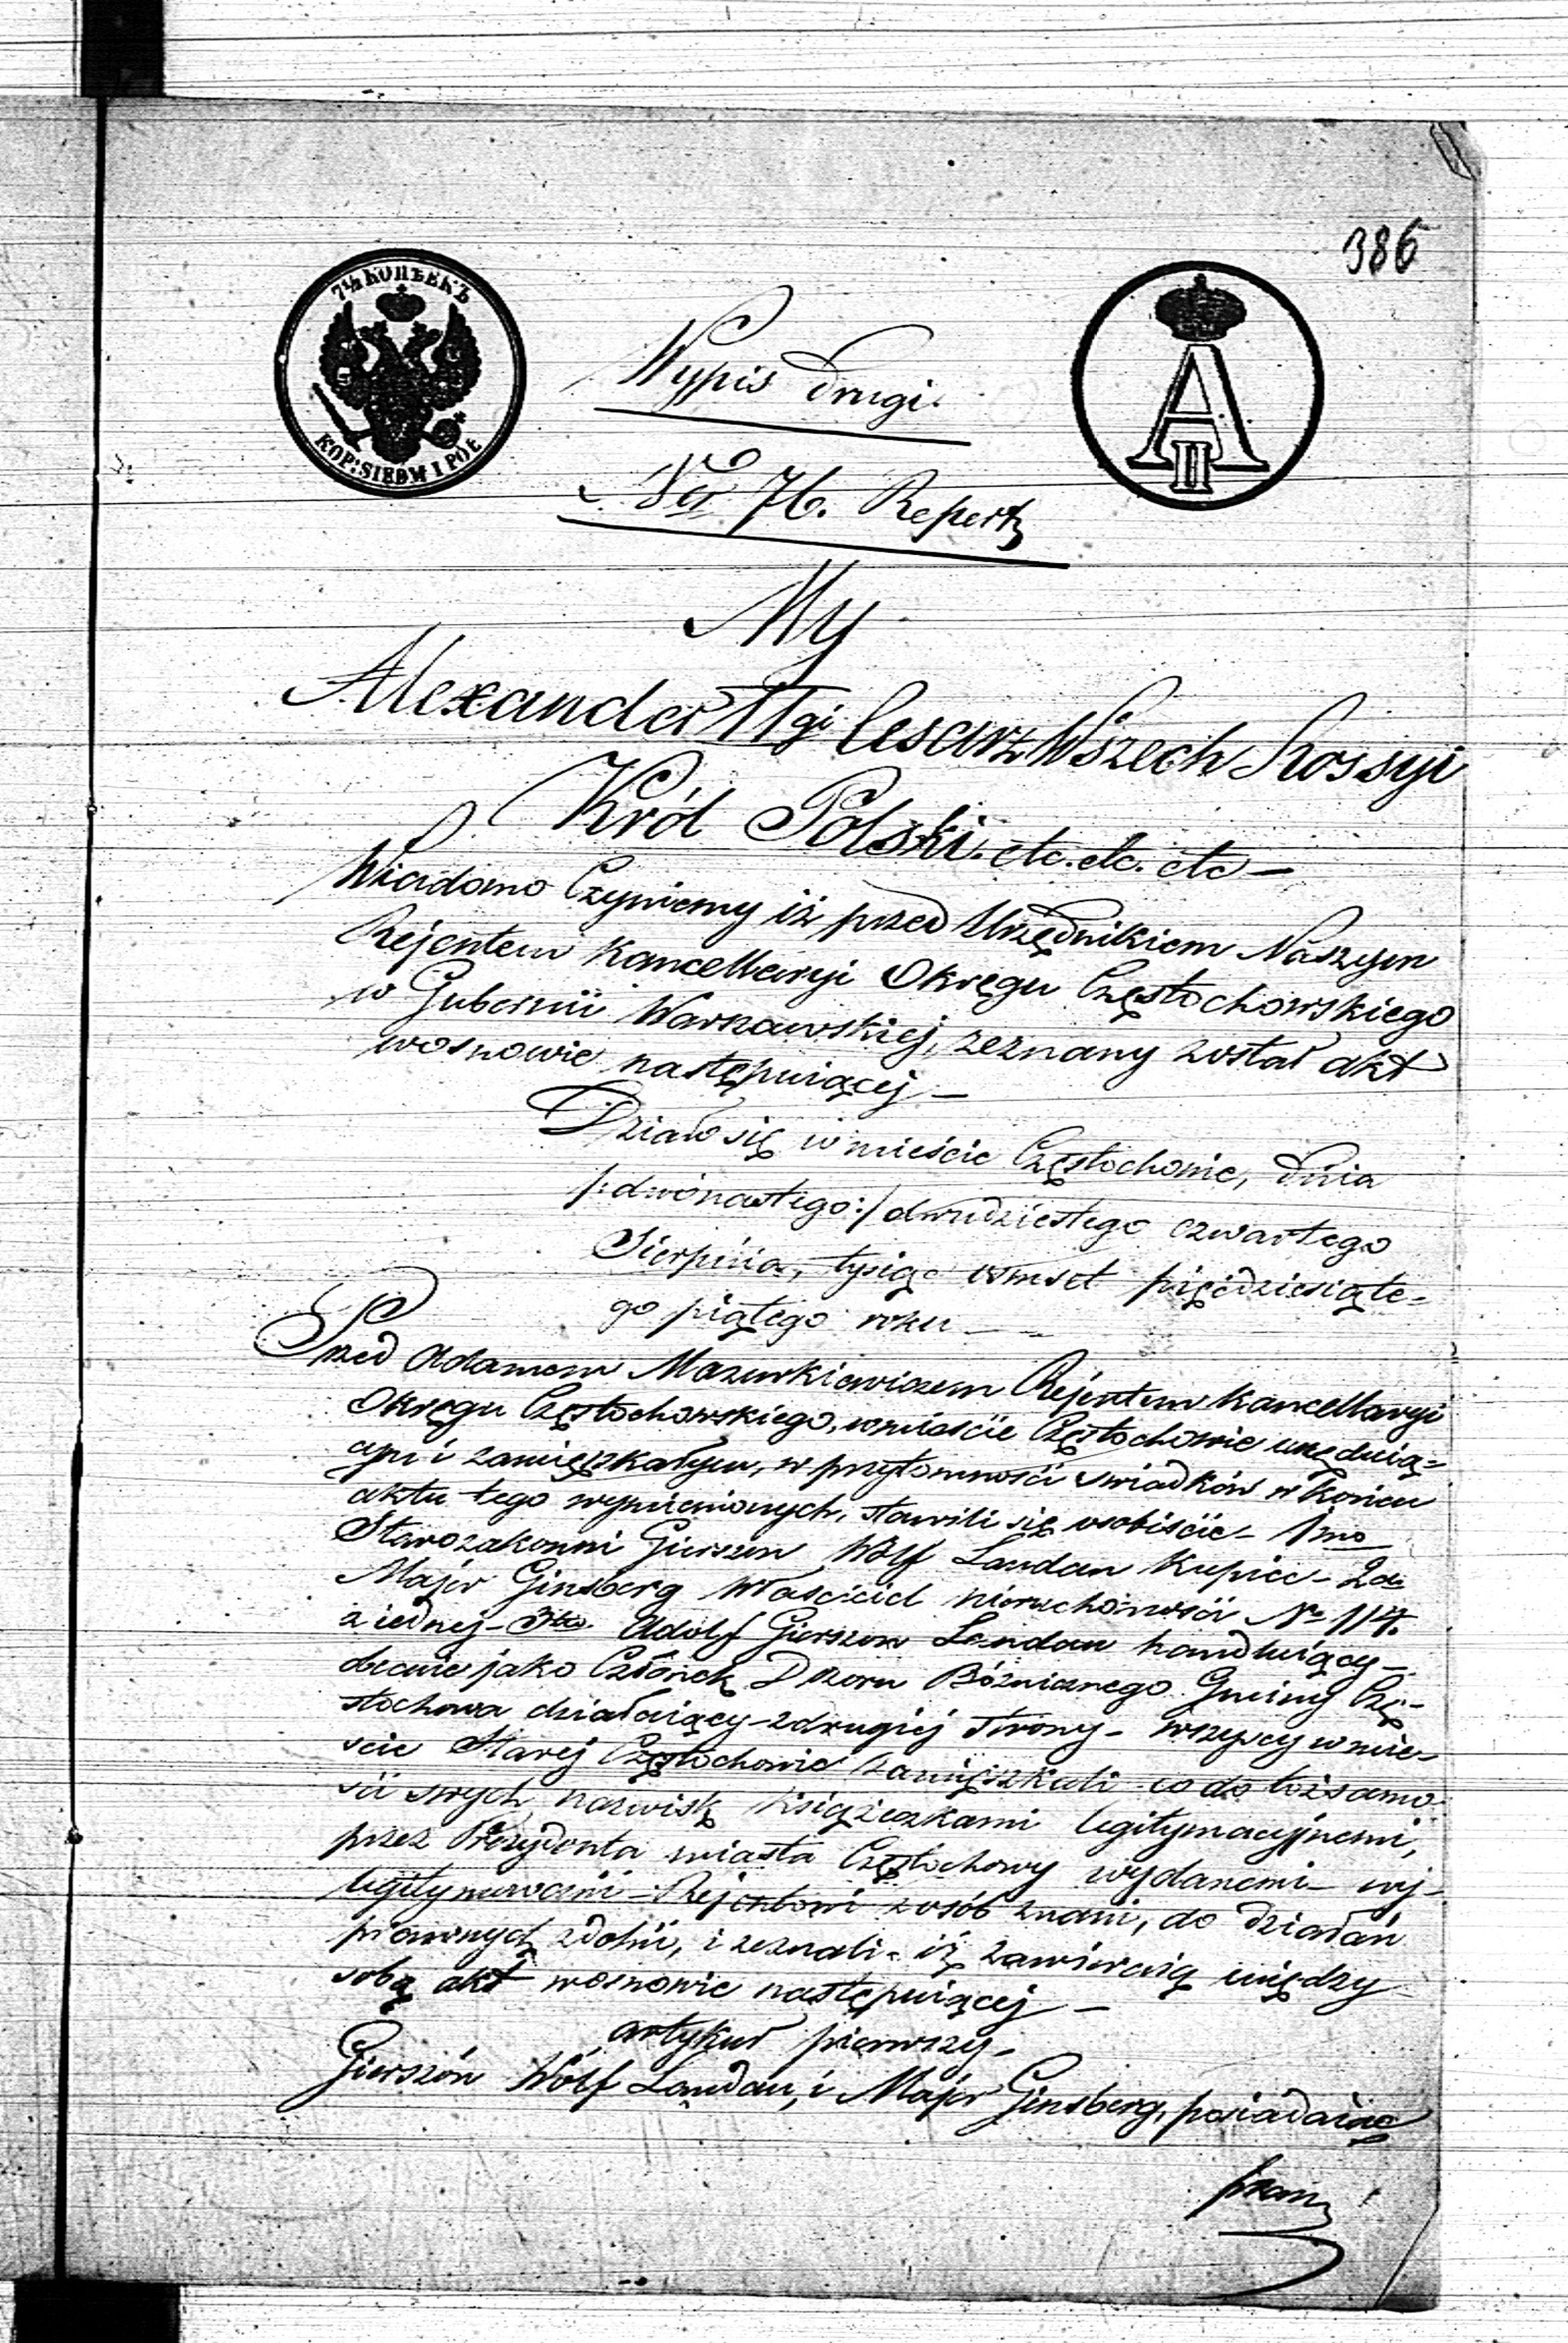 386
7½ КОПѢЕКЪ
KOP: SIEDM I PÓŁ
Wypis drugi.
A II
Nr 76. Repert
My
Alexander IIgi Cesarz Wszech Rossyi
Król Polski. etc. etc. etc —
Wiadomo Czyniemy iż przed Urzędnikiem Naszym
Rejentem Kancellaryi Okręgu Częstochowskiego
w Gubernii Warszawskiej, zeznany został akt
wosnowie następuiącej —
Działo się w mieście Częstochowie, dnia
/:dwónastego:/ dwudziestego czwartego
Sierpnia, tysiąc osmset pięćdziesiąte-
go piątego roku —
Przed Adamem Mazurkiewiczem Rejentem Kancellaryi
Okręgu Częstochowskiego, wmieście Częstochowie urzęduią-
cym i zamięszkałym, w przytomności swiadków w końcu
aktu tego wymienionych, stawili się osobiście - 1mo
Starozakonni Gierszon Wolf Landau Kupiec - 2do
Majer Ginsberg Własciciel nieruchomości No 114.
z iednej - 3tio Adolf Gierszon Landau handluiący -
obecnie jako Członek Dozoru Bóżniczego Gminy Czę-
stochowa działaiący - zdrugiej strony - wszyscy wmie-
scie Starej Częstochowie zamięszkali - co do tożsamo-
ści swych nazwisk książeczkami legitymacyjnemi,
przez Prezydenta miasta Częstochowy wydanemi - wy-
legitymowani - Rejentowi z osób znani, do działań
prawnych zdolni, i zeznali - iż zawieraią między
sobą akt wosnowie następuiącej —
artykuł pierwszy -
Gierszón Wolf Landau, i Majer Ginsberg, posiadaiąc